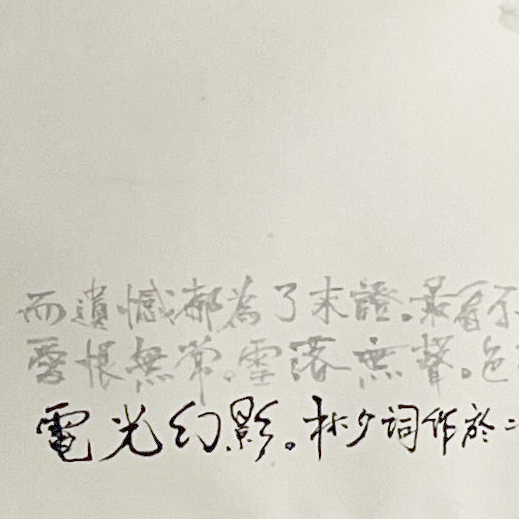 而遺憾都為了求證。最看不
愛恨無常。雪落無聲。色
電光幻影。林夕詞作於二